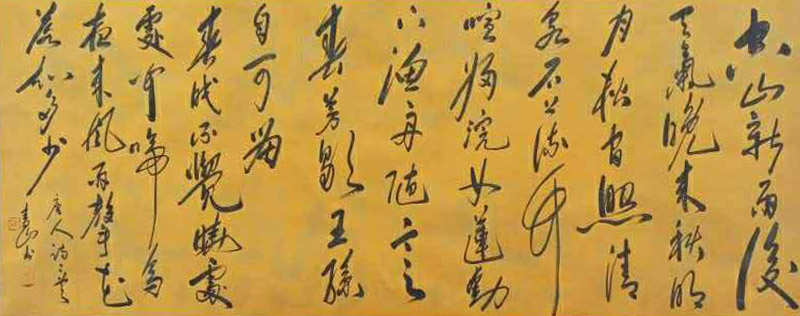 空山新雨後
天氣晚来秋明
月松间照清
泉石上流竹
喧歸浣女蓮動
下渔舟随意
春芳歇王孫
自可留
春眠不覺曉處
處闻啼鸟
夜来风雨聲花
落知多少
唐人诗二首